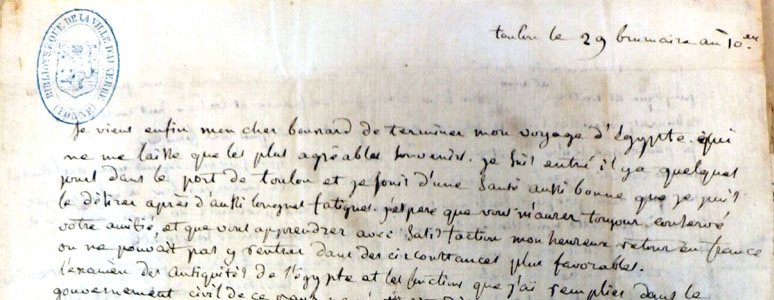 BIBLIOTHEQUE DE LA VILLE D'AUXERRE
(YONNE)
toulon le 29 brumaire an 10.eme
Je viens enfin mon cher bonnard de terminer mon voyage d'égypte. qui
ne me laisse que les plus agréables souvenirs. je suis entré il ya quelques
jours dans le port de toulon et je jouis d'une santé aussi bonne que je puis
le désirer après d'aussi longues fatigues. j'espère que vous m'aurez toujours conservé
votre amitié, et que vous apprendrez avec satisfaction mon heureux retour en france
on ne pouvait pas y rentrer dans des circonstances plus favorables.
l'examen des antiquités de l'égypte et les fonctions que j'ai remplies dans le
gouvernement civil de ce